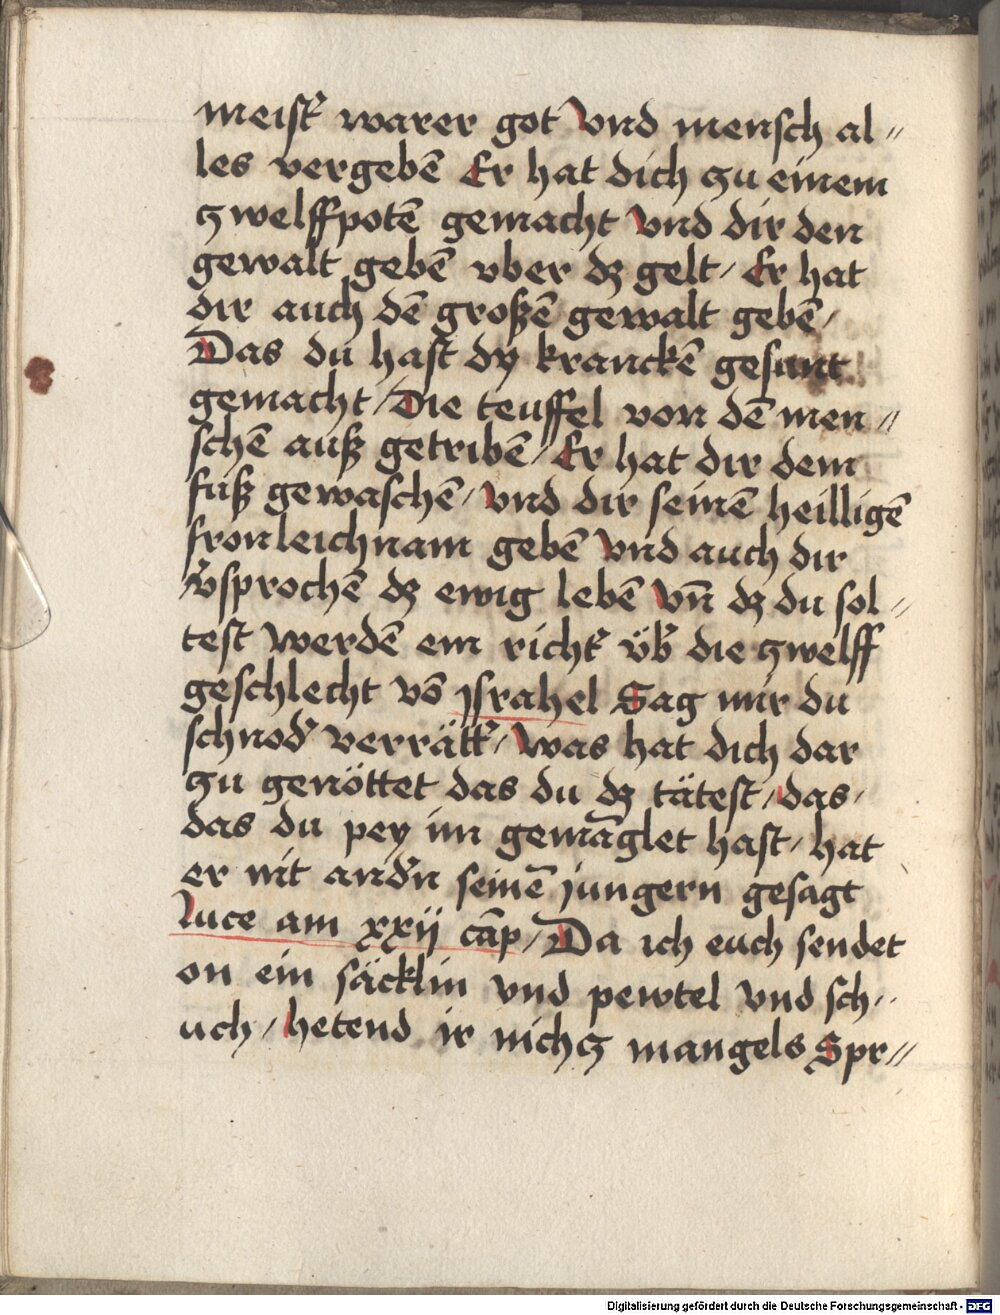 meist᷑ warer got Vnd mensch al〃
les vergebē Er hat dich zu einem
zwelffpotē gemacht Vnd dir den
gewalt gebē vber dz gelt / Er hat
dir auch dē großē gewalt gebē /
Das du hast dy kranckē gesunt
gemacht / Die teuffel von dē men〃
schē auß getribē / Er hat dir dein
fuß gewaschē / Vnd dir seinē heilligē
fronleichnam gebē Vnd auch dir
v᷑sprochē dz ewig lebē Vn̄ dz du sol〃
test werdē ein richt᷑ üb᷑ die zwelff
geschlecht vō jsrahel Sag mir du
schnod᷑ verrätt᷑ / Was hat dich dar
zu genöttet das du dz tätest / das /
das du pey im gemāglet hast / hat
er nit and᷑n seinē jungern gesagt
Luce am xxij cāp / Da ich euch sendet
on ein säcklin vnd pewtel vnd sch〃
uch / hetend ir nichz mangels Spr〃
Digitalisierung gefördert durch die Deutsche Forschungsgemeinschaft - DFG